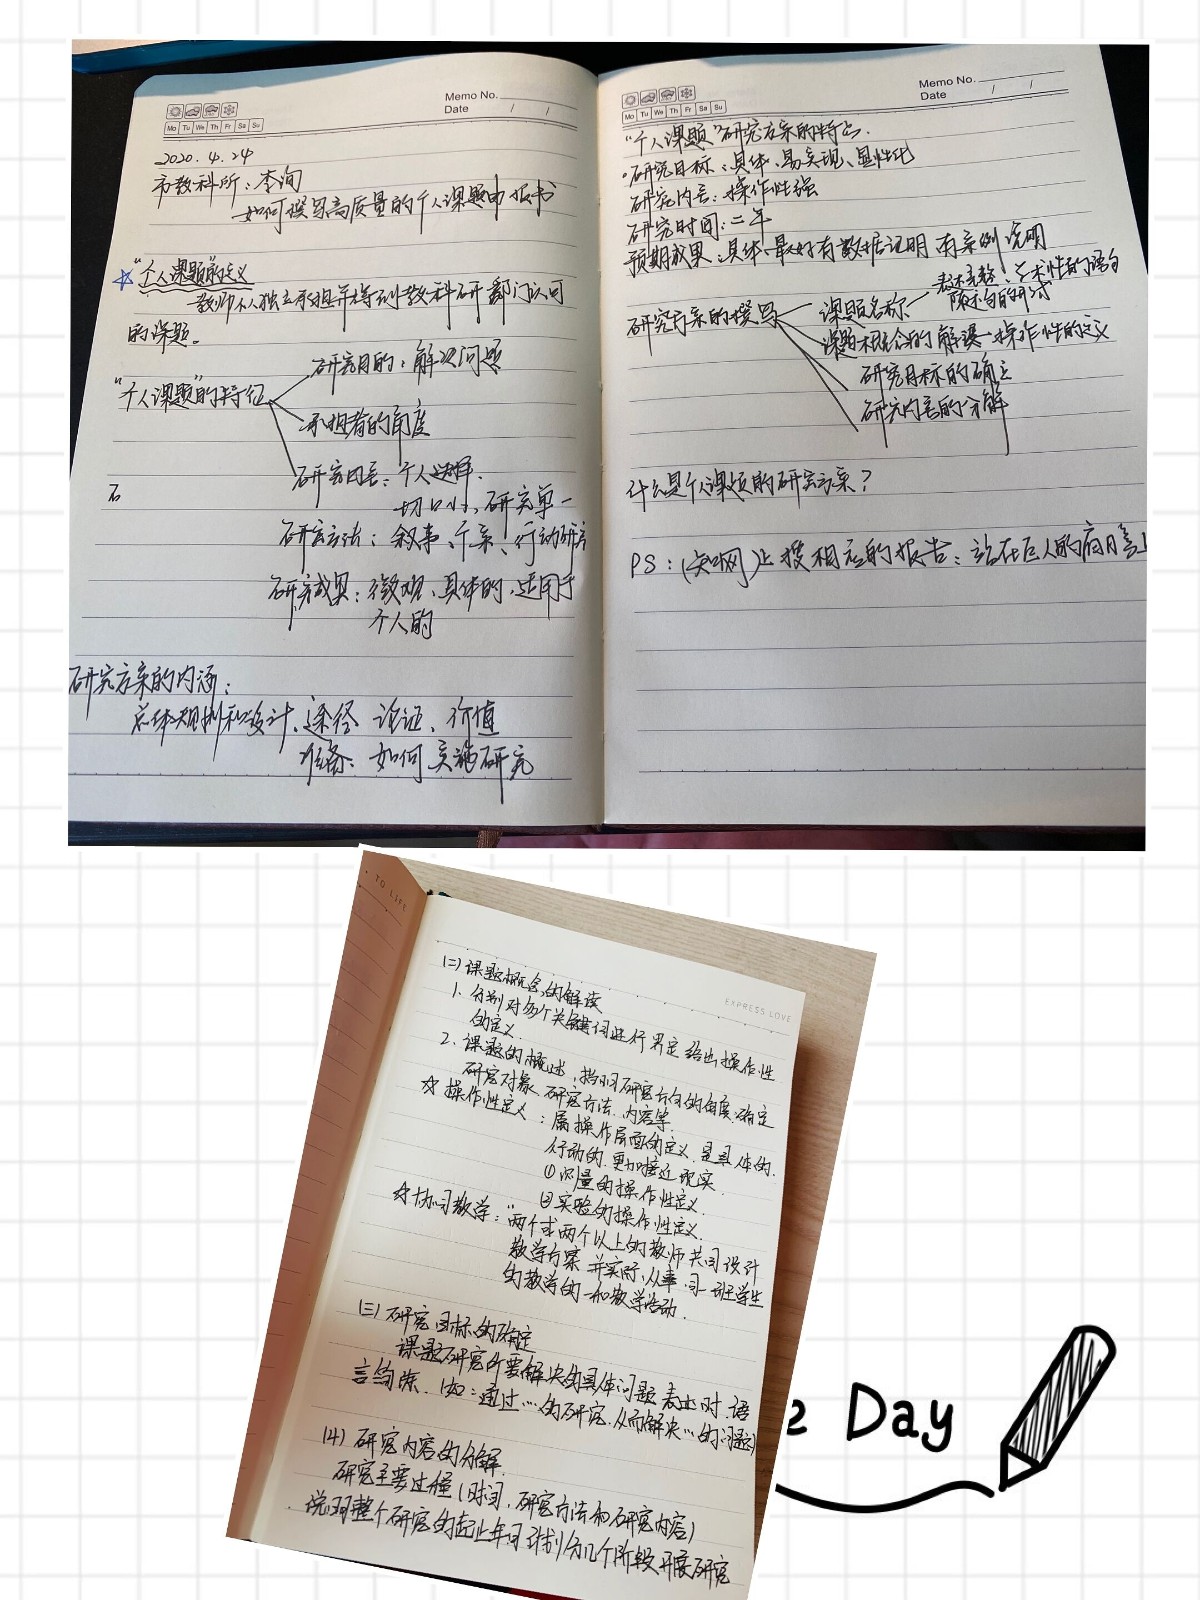 Memo No.
Date / /
Mo Tu We Th Fr Sa Su
2020.4.24
市教科所:查询
如何撰写高质量的个人课题申报书
☆"个人课题"的定义
教师个人独立承担并得到教科研部门认可
的课题。
"个人课题"的特征
研究目的:解决问题
承担者的角度
研究内容:个人选择.
切口小,研究单一
石
研究方法:叙事、个案、行动研究
研究成果:微观、具体的、适用于
个人的
研究方案的内涵:
总体规划和设计、途径 论证、价值
准备:如何实施研究
Memo No.
Date / /
Mo Tu We Th Fr Sa Su
"个人课题"研究方案的特点.
·研究目标:具体、易实现、显性化
研究内容:操作性强
研究时间:二年
预期成果:具体、最好有数据证明 有案例说明
研究方案的撰写
课题名称
学术性的语句
陈述句的形式
课题概念的解读-操作性的定义
研究目标的确立
研究内容的分解
什么是个人课题的研究方案?
PS:(知网)上搜相应的报告:站在巨人的肩膀上
TO LIFE
EXPRESS LOVE
(二)课题概念的解读
1. 分别对每个关键词进行界定 给出操作性
的定义.
2. 课题的概述,指明研究方向的角度.确定
研究对象.研究方法.内容等.
☆操作性定义:属操作层面的定义.是具体的.
行动的.更加接近现实.
①测量的操作性定义.
②实验的操作性定义.
☆协同教学:"两个或两个以上的教师共同设计
教学方案 并实际,从事同一班学生
的教学的一种教学活动.
(三)研究目标的确定
课题研究所要解决的具体问题 表述时.语
言简练.(如:通过…的研究.从而解决…的问题)
(4)研究内容的分解.
研究主要过程(时间.研究方法和研究内容)
说明整个研究的起止年月 计划分几个阶段开展研究
Day